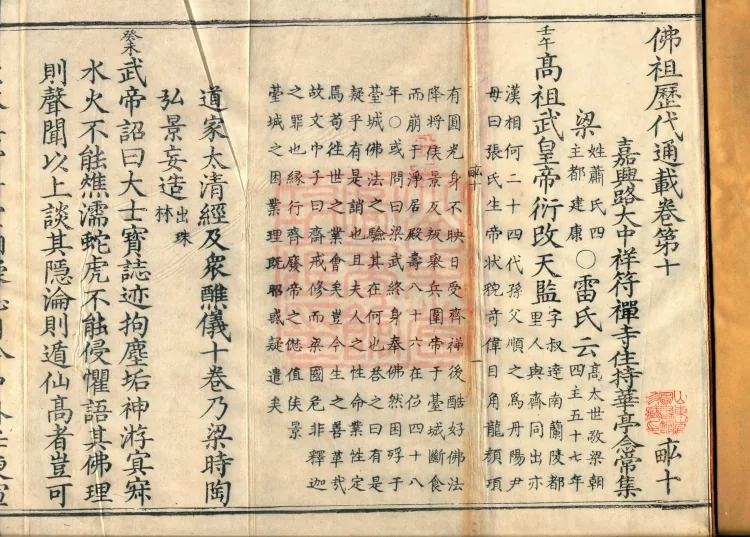 佛祖歷代通載卷第十
畆十
嘉興路大中祥符禪寺住持華亭念常集
梁 姓蕭氏四主都建康 〇雷氏云 高太世敬梁朝四主五十七年
壬午 髙祖武皇帝衍改天監 字叔達南蘭陵都里人與齊同出亦
漢相何二十四代孫父順之爲丹陽尹
母曰張氏生帝狀貌竒偉日角龍顏項
畆十
有圓光身不映日受齊禪後酷好佛法
降將侯景反叛舉兵圍帝于臺城斷食
而崩于淨居殿壽八十六在位四十八
年〇或問曰梁武終身奉佛然困殍于
䑓城佛法之驗其在何也荅之曰有是
疑乎有是誚也且夫人之性命業性定
焉苟往世之業會矣豈今生之善革哉
故文中子曰齋戒修而梁國危非釋迦
之罪也緣行齊廢帝之僽值侯景
䑓城之困業理旣耶惑疑遣矣
道家太清經及衆醮儀十卷乃梁時陶
弘景妄造 出珠林
癸未 武帝詔曰大士寶誌迹拘塵垢神游冥寂
水火不能燋濡蛇虎不能侵懼語其佛理
則聲聞以上談其隱淪則遁仙高者豈可